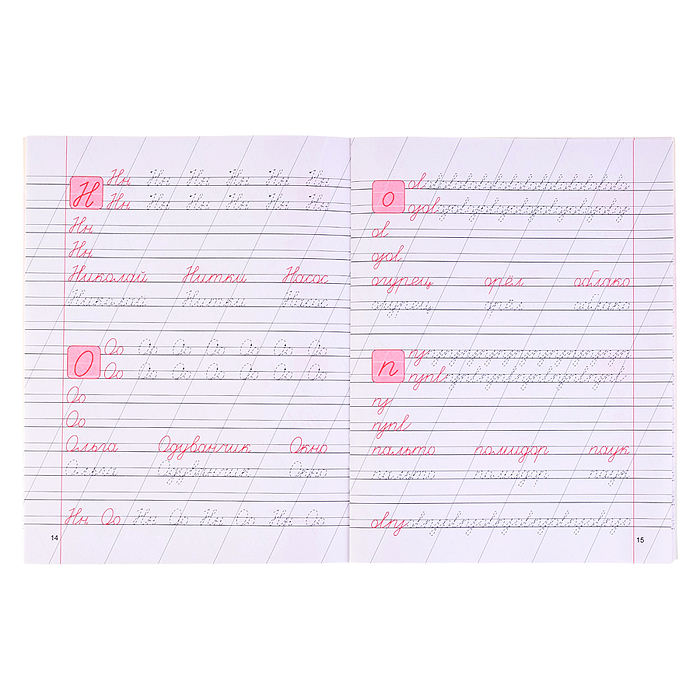 Н Нн Нн Нн Нн Нн Нн
Нн Нн Нн Нн Нн Нн
Нн
Нн
Николай Нитки Насос
Николай Нитки Насос
О Оо Оо Оо Оо Оо Оо Оо
Оо Оо Оо Оо Оо Оо Оо
Оо
Оо
Ольга Одуванчик Окно
Ольга Одуванчик Окно
Нн Оо Нн Оо Нн Оо Нн Оо
14
о
огурец орёл облако
огурец орёл облако
п
пальто помидор паук
пальто помидор паук
15